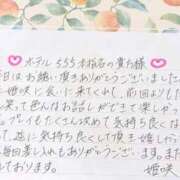 ホテル 555 本指名の貴方様
今日はお誘い頂きありがとうございました
姫咲に会いに来てくれて、前回よりも
笑って色んなお話しができて楽しかっ
プレイもたくさん攻めて気持ち良くし
に気持ち良くして頂き嬉しか
毎回差し入れもありがとうございます
ております。 姫咲